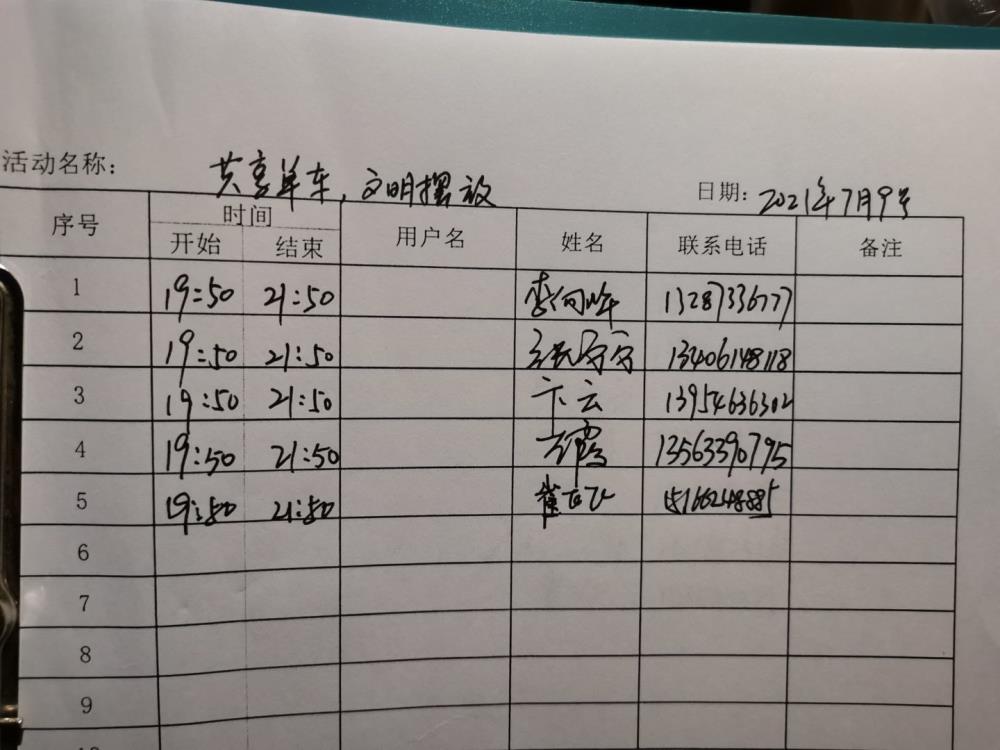 活动名称： 共享单车，文明摆放 日期：2021年7月9号
序号 时间 用户名 姓名 联系电话 备注
开始 结束
1 19:50 21:50 李向峰 13287336777
2 19:50 21:50 13406148118
3 19:50 21:50 卞云 13954636302
4 19:50 21:50 13563390795
5 19:50 21:50 崔 15166248885
6
7
8
9